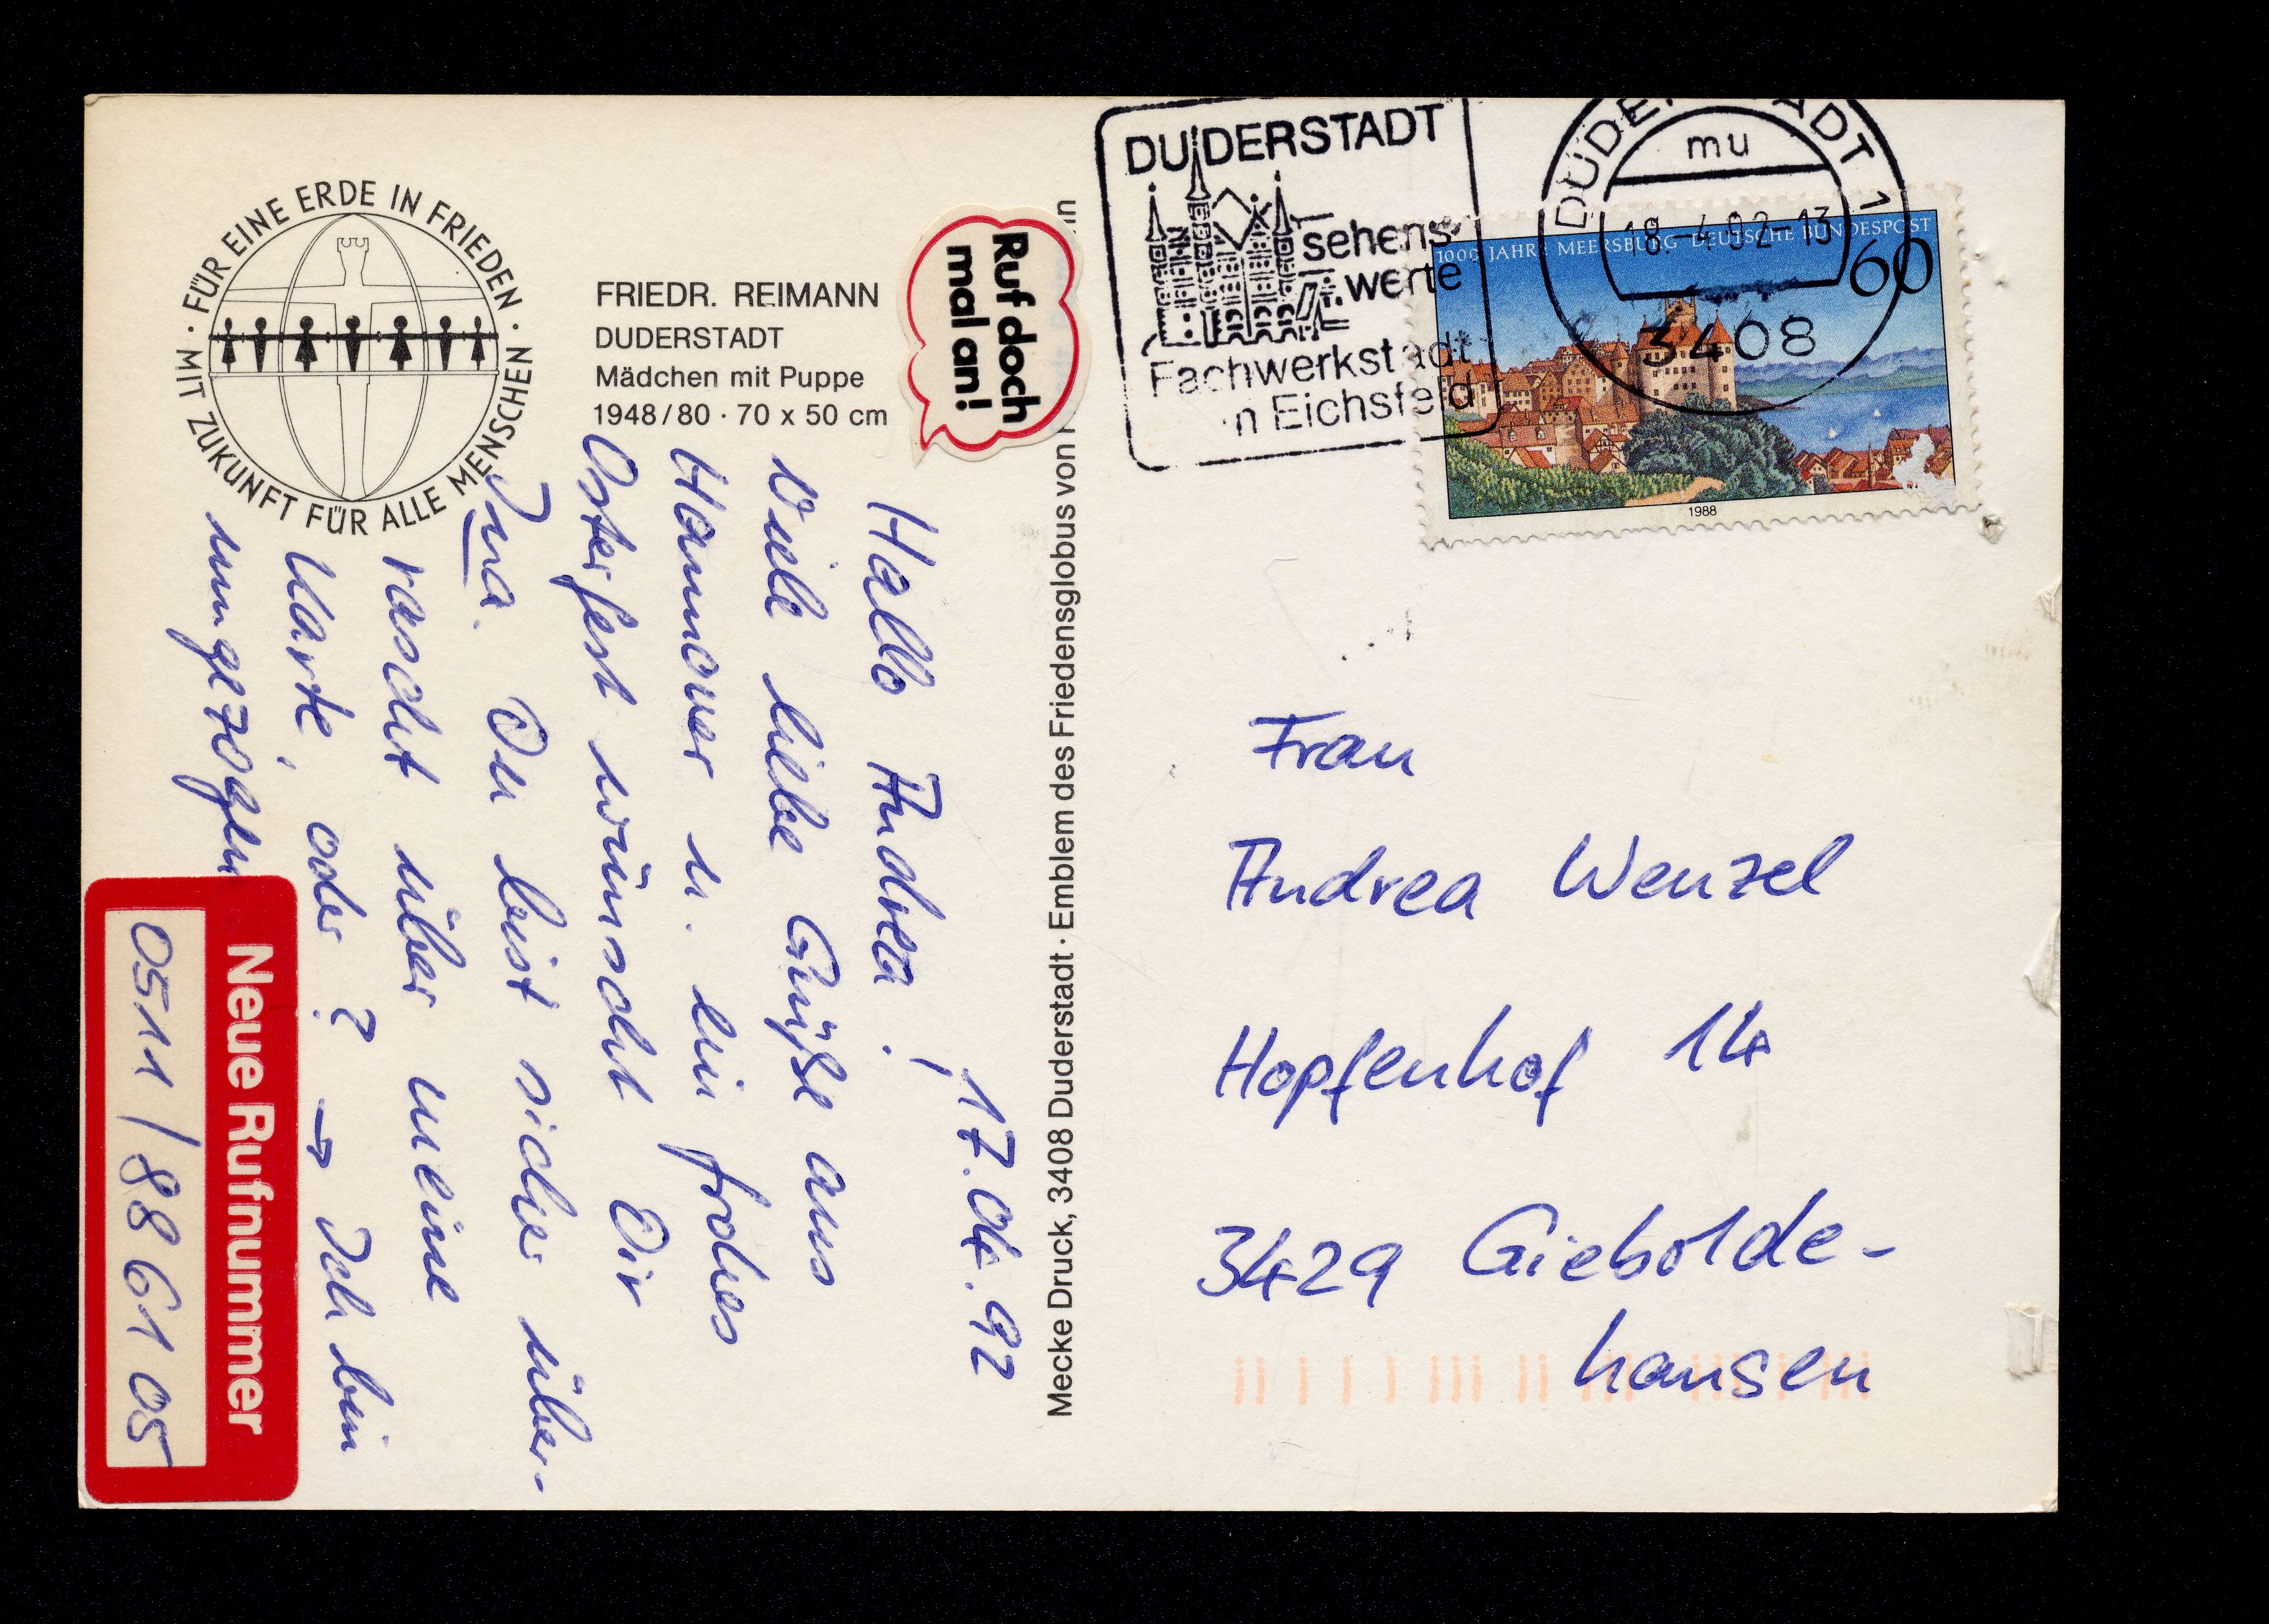 · FÜR EINE ERDE IN FRIEDEN ·
MIT ZUKUNFT FÜR ALLE MENSCHEN
FRIEDR. REIMANN
DUDERSTADT
Mädchen mit Puppe
1948/80 · 70 x 50 cm
Ruf doch
mal an!
17.04.92
Hallo Andrea!
Viele liebe Grüße aus
Hannover u. ein frohes
Osterfest wünscht Dir
Ina. Du bist sicher über-
rascht über meine
Karte, oder? → Ich bin
umgezogen
Neue Rufnummer
0511/886105
Mecke Druck, 3408 Duderstadt · Emblem des Friedensglobus von
DUDERSTADT
sehens-
werte
Fachwerkstadt
im Eichsfeld
DUDERSTADT 1
mu
18.-4.92-13
3408
1000 JAHRE MEERSBURG DEUTSCHE BUNDESPOST
60
1988
Frau
Andrea Wenzel
Hopfenhof 14
3429 Giebolde-
hausen